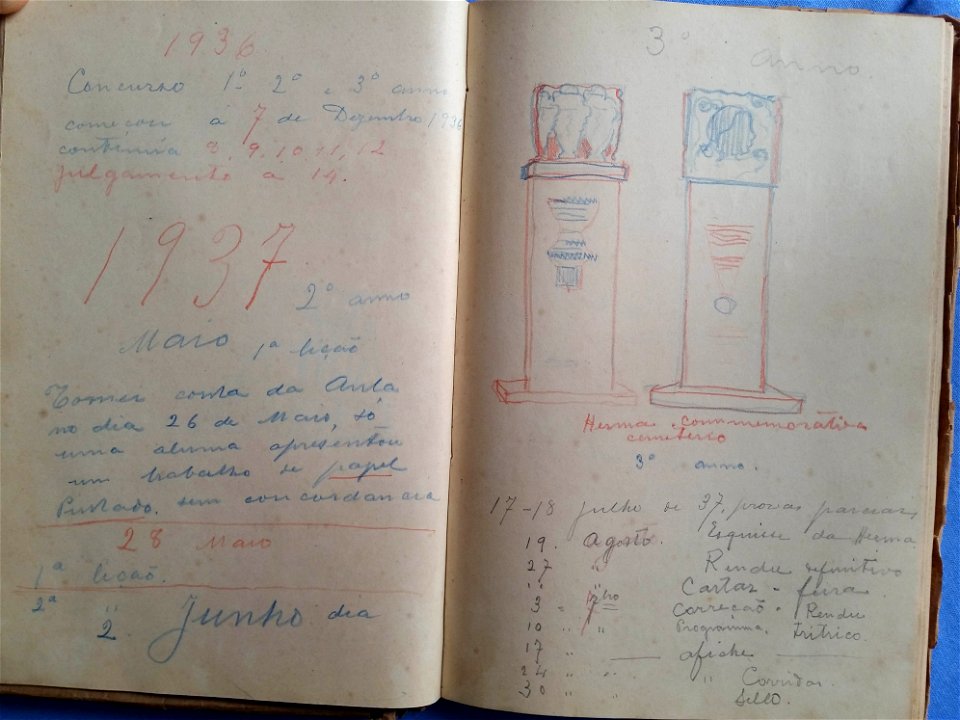 1936
Concurso 1º 2º e 3º anno
começou a 7 de Dezembro 1936
continúa 8, 9, 10, 11, 12
julgamento a 14.
1937
2º anno
Maio 1ª lição
Tomei conta da Aula
no dia 26 de Maio, só
uma aluna apresentou
um trabalho de papel
Pintado. sem concordancia
28 Maio
1ª lição.
2ª " Junho dia
2
3º anno
Herma commemorativa
cemeterio
3º anno.
17-18 julho de 37, provas parciaes
19. Agosto. Esquisse da Herma
27 " Rendu definitivo
" " Cartaz - feira
3 - 7bro Correção - Rendu
10 " " Programma.
17 " — afiche —
24 " " " Corridas
30 " " Sello.